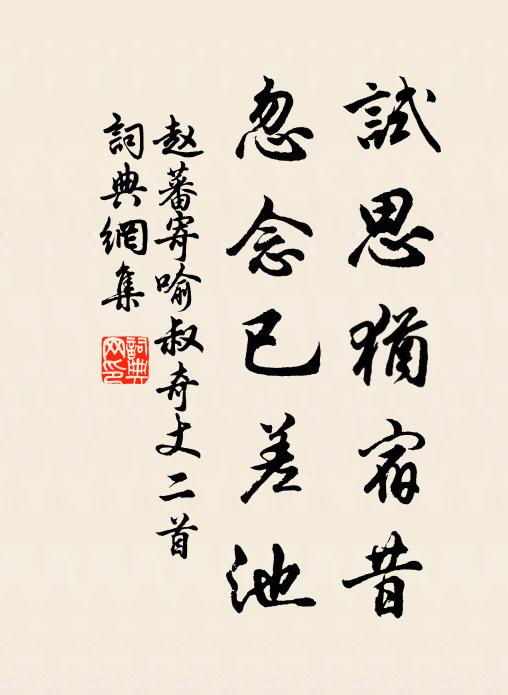 試思猶宿昔
忽念已差池
赵蕃寄喻叔奇丈二首
詞典網集
詞典網印